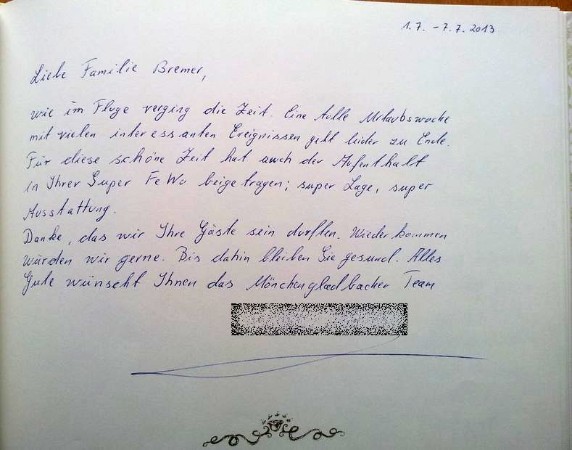 1.7. - 7.7. 2013
Liebe Familie Bremer,
wie im Fluge verging die Zeit. Eine tolle Urlaubswoche
mit vielen interessanten Ereignissen geht leider zu Ende.
Für diese schöne Zeit hat auch der Aufenthalt
in Ihrer Super FeWo beigetragen; super Lage, super
Ausstattung.
Danke, das wir Ihre Gäste sein durften. Wieder kommen
würden wir gerne. Bis dahin bleiben Sie gesund. Alles
Gute wünscht Ihnen das Mönchengladbacher Team